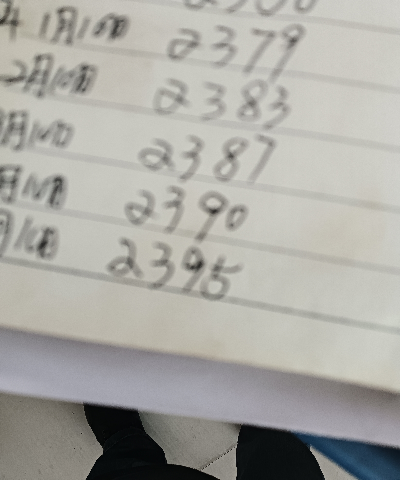 1月10日 2379
2月10日 2383
月10日 2387
月10日 2390
月10日 2395